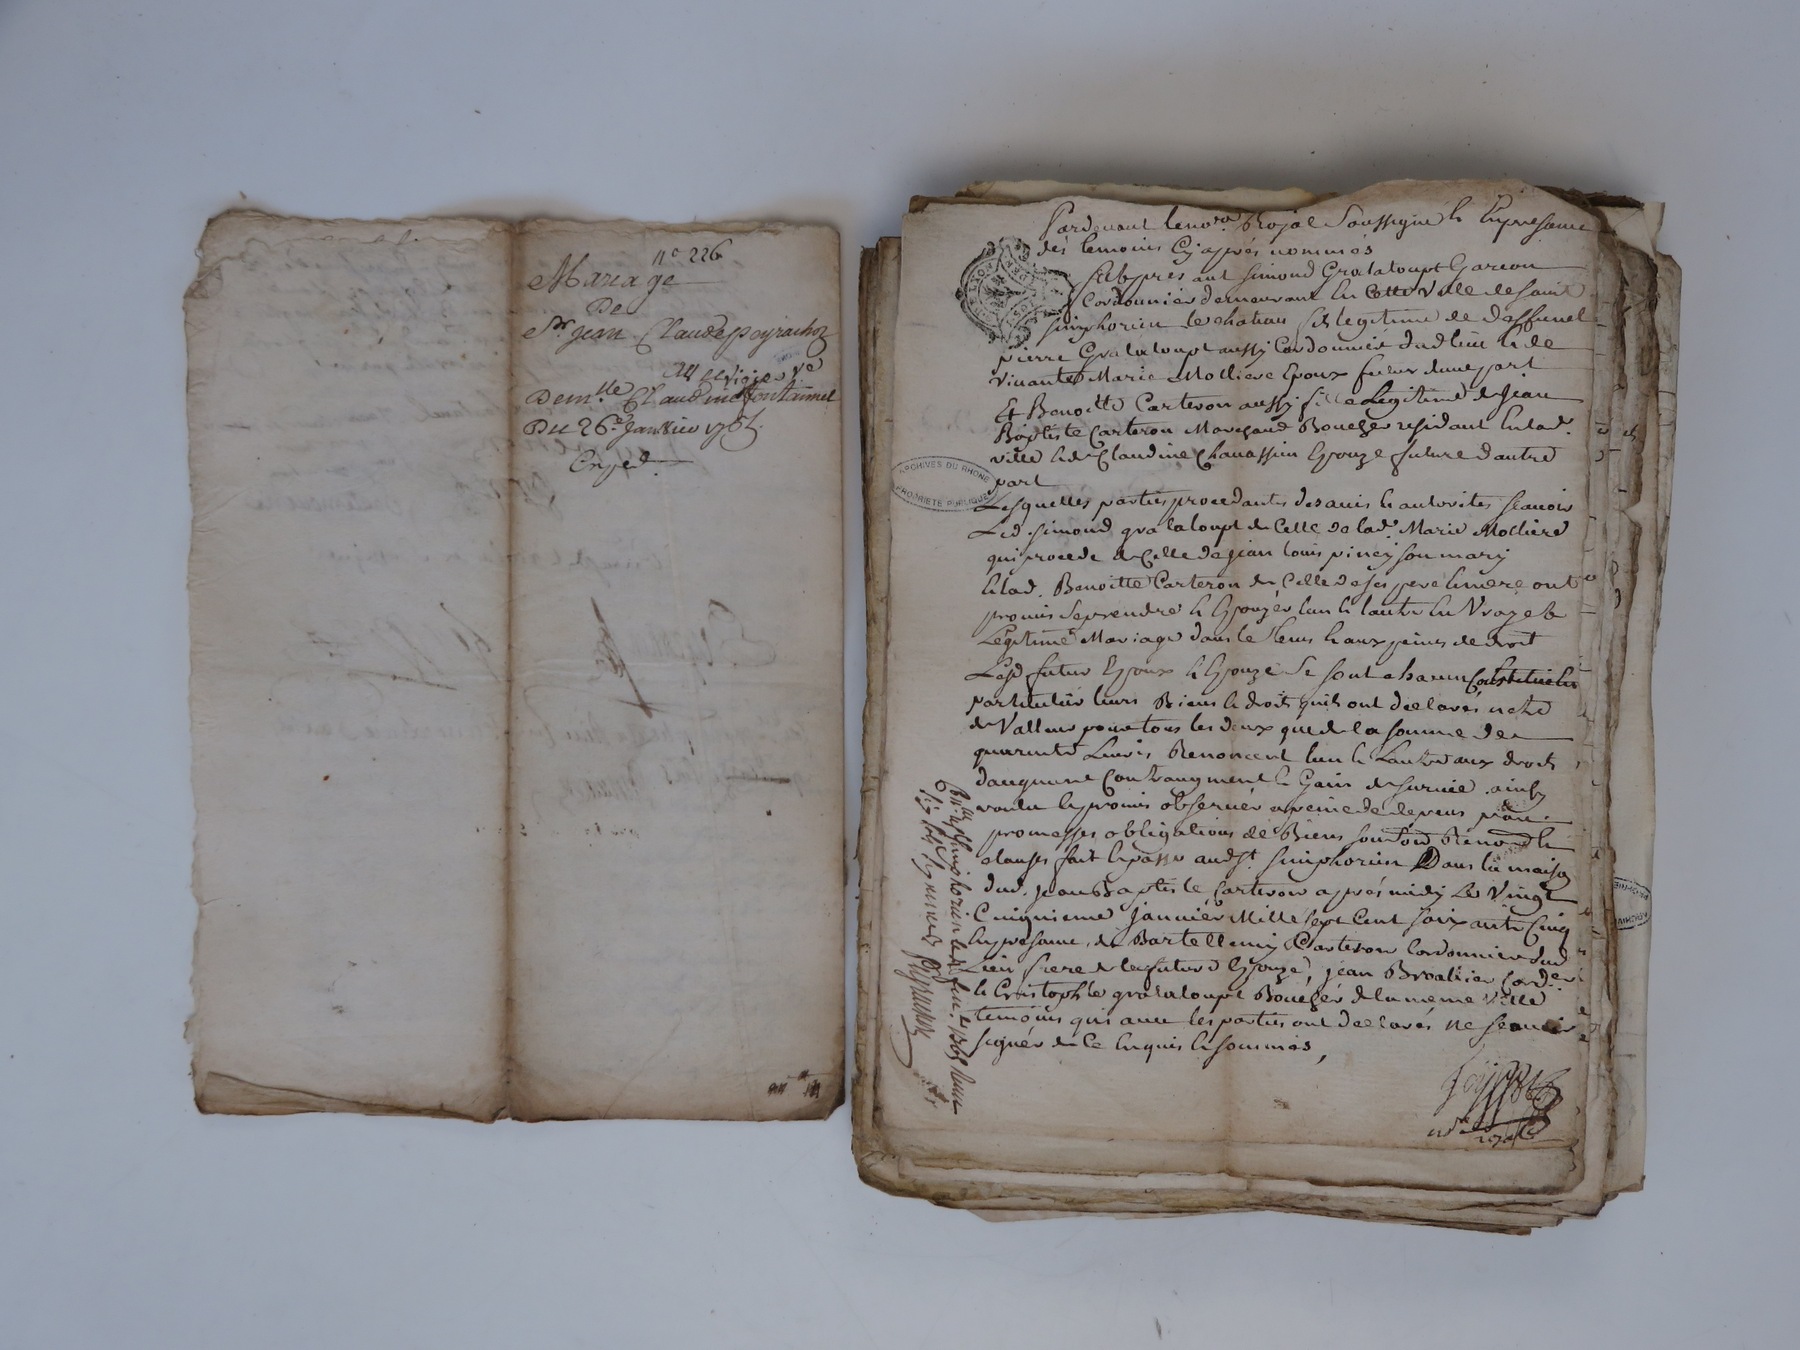 n° 226
Mariage
De
Sr. jean Claude peyrachon
Demlle Claudine fontannel
Du 26e Janvier 1765
Exped.
Pardevant le nore Royal Soussigné & En presance
des temoins Cy après nommés
fut present Simond Grataloupt Garcon
Cordonnier demeurant En Cette ville de saint
simphorien le chateau fils legitime de deffunct
pierre Grataloupt aussy Cordonnier dud lieu & de
vivante Marie Molliere Epoux futur d'une part
Et Benoitte Carteron aussy fille Legitime de Jean
Baptiste Carteron Marchand Boucher residant En lad.
ville & de Claudine Chavassieu Epouze future d'autre
part
Lesquelles parties procedantes des avis & autorités scavoir
Led. simond grataloupt de Celle de lad. Marie Molliere
qui procede de Celle de jean louis piney son mary
& lad. Benoitte Carteron de Celle de ses pere & mere ont
promis se prendre & Epouzer l'un & l'autre En Vraye &
Légitime Mariage dans le tems & aux peines de droit
Lesd futur Epoux & Epouze se sont chacun Constitué En
particulier leurs Biens & droits quils ont declarés netre
de Valleur pour tous les deux que de la somme de
quarante Livres Renoncent l'un & Lautre aux droits
daugment Contraugment & Gains de survie. ainsy
voulu & promis observer a peine de depens par
promesses obligations de Biens soum Renon &
clauses fait & passé aud St. simphorien Dans la maison
dud. jean Baptiste Carteron après midy Le Vingt
Cinquieme janvier Mille sept Cent soixante Cinq
En presance de Bartellemy Carteron Cordonnier dud
Lieu frere de la future Epouze, jean Broallier Corder
& Cristophle grataloupt Boucher de la meme ville
temoins qui avec les parties ont declarés ne scavoir
signer de Ce Enquis & sommés,
nore royal
ARCHIVES DU RHONE
PROPRIETE PUBLIQUE